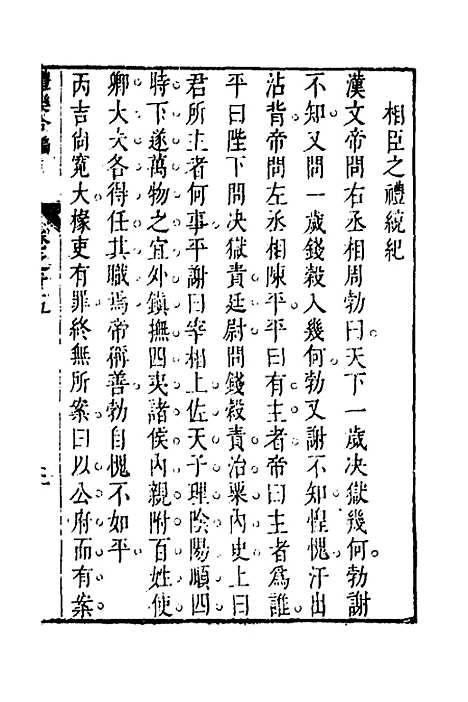 相臣之禮統紀
漢文帝問右丞相周勃曰天下一歲决獄幾何勃謝
不知又問一歲錢榖入幾何勃又謝不知惶愧汗出
沾背帝問左丞相陳平平曰有主者帝曰主者爲誰
平曰陛下問决獄責廷尉問錢榖責治粟內史上曰
君所主者何事平謝曰宰相上佐天子理隂陽順四
時下遂萬物之宜外鎮撫四夷諸侯內親附百姓使
卿大夫各得任其職焉帝稱善勃自愧不如平
丙吉尙寬大椽吏有罪終無所案曰以公府而有案
禮樂合編 卷之十五